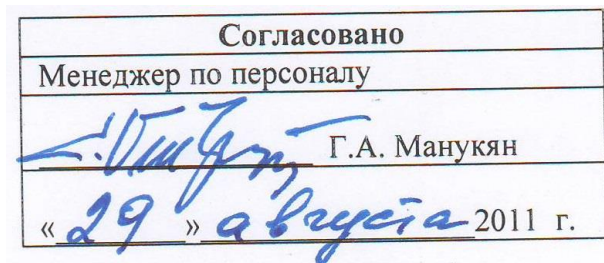 Согласовано
Менеджер по персоналу
Г.А. Манукян
« 29 » августа 2011 г.